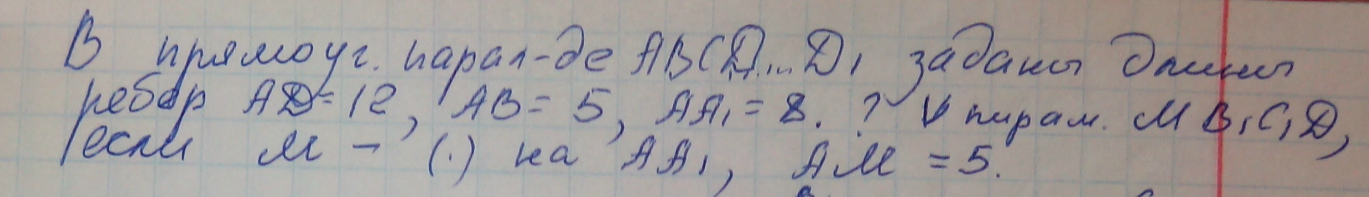 В прямоуг. парал-де ABCD...D₁ заданы длины
ребер AD=12, AB=5, AA₁=8. ? V пирам. MB₁C₁D,
если M - (·) на AA₁, AM=5.